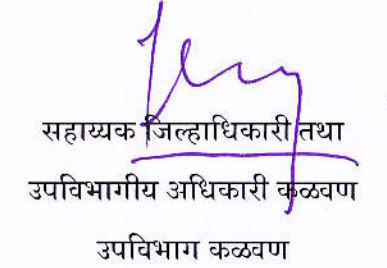 सहाय्यक जिल्हाधिकारी तथा
उपविभागीय अधिकारी कळवण
उपविभाग कळवण